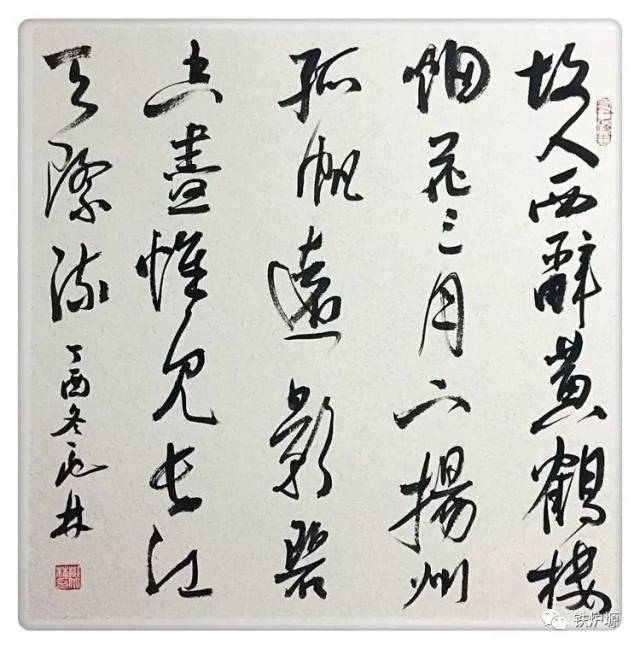 故人西辞黄鹤楼
烟花三月下揚州
孤帆遠影碧
空盡惟見长江
天際流
丁酉冬 林
铁炉塬